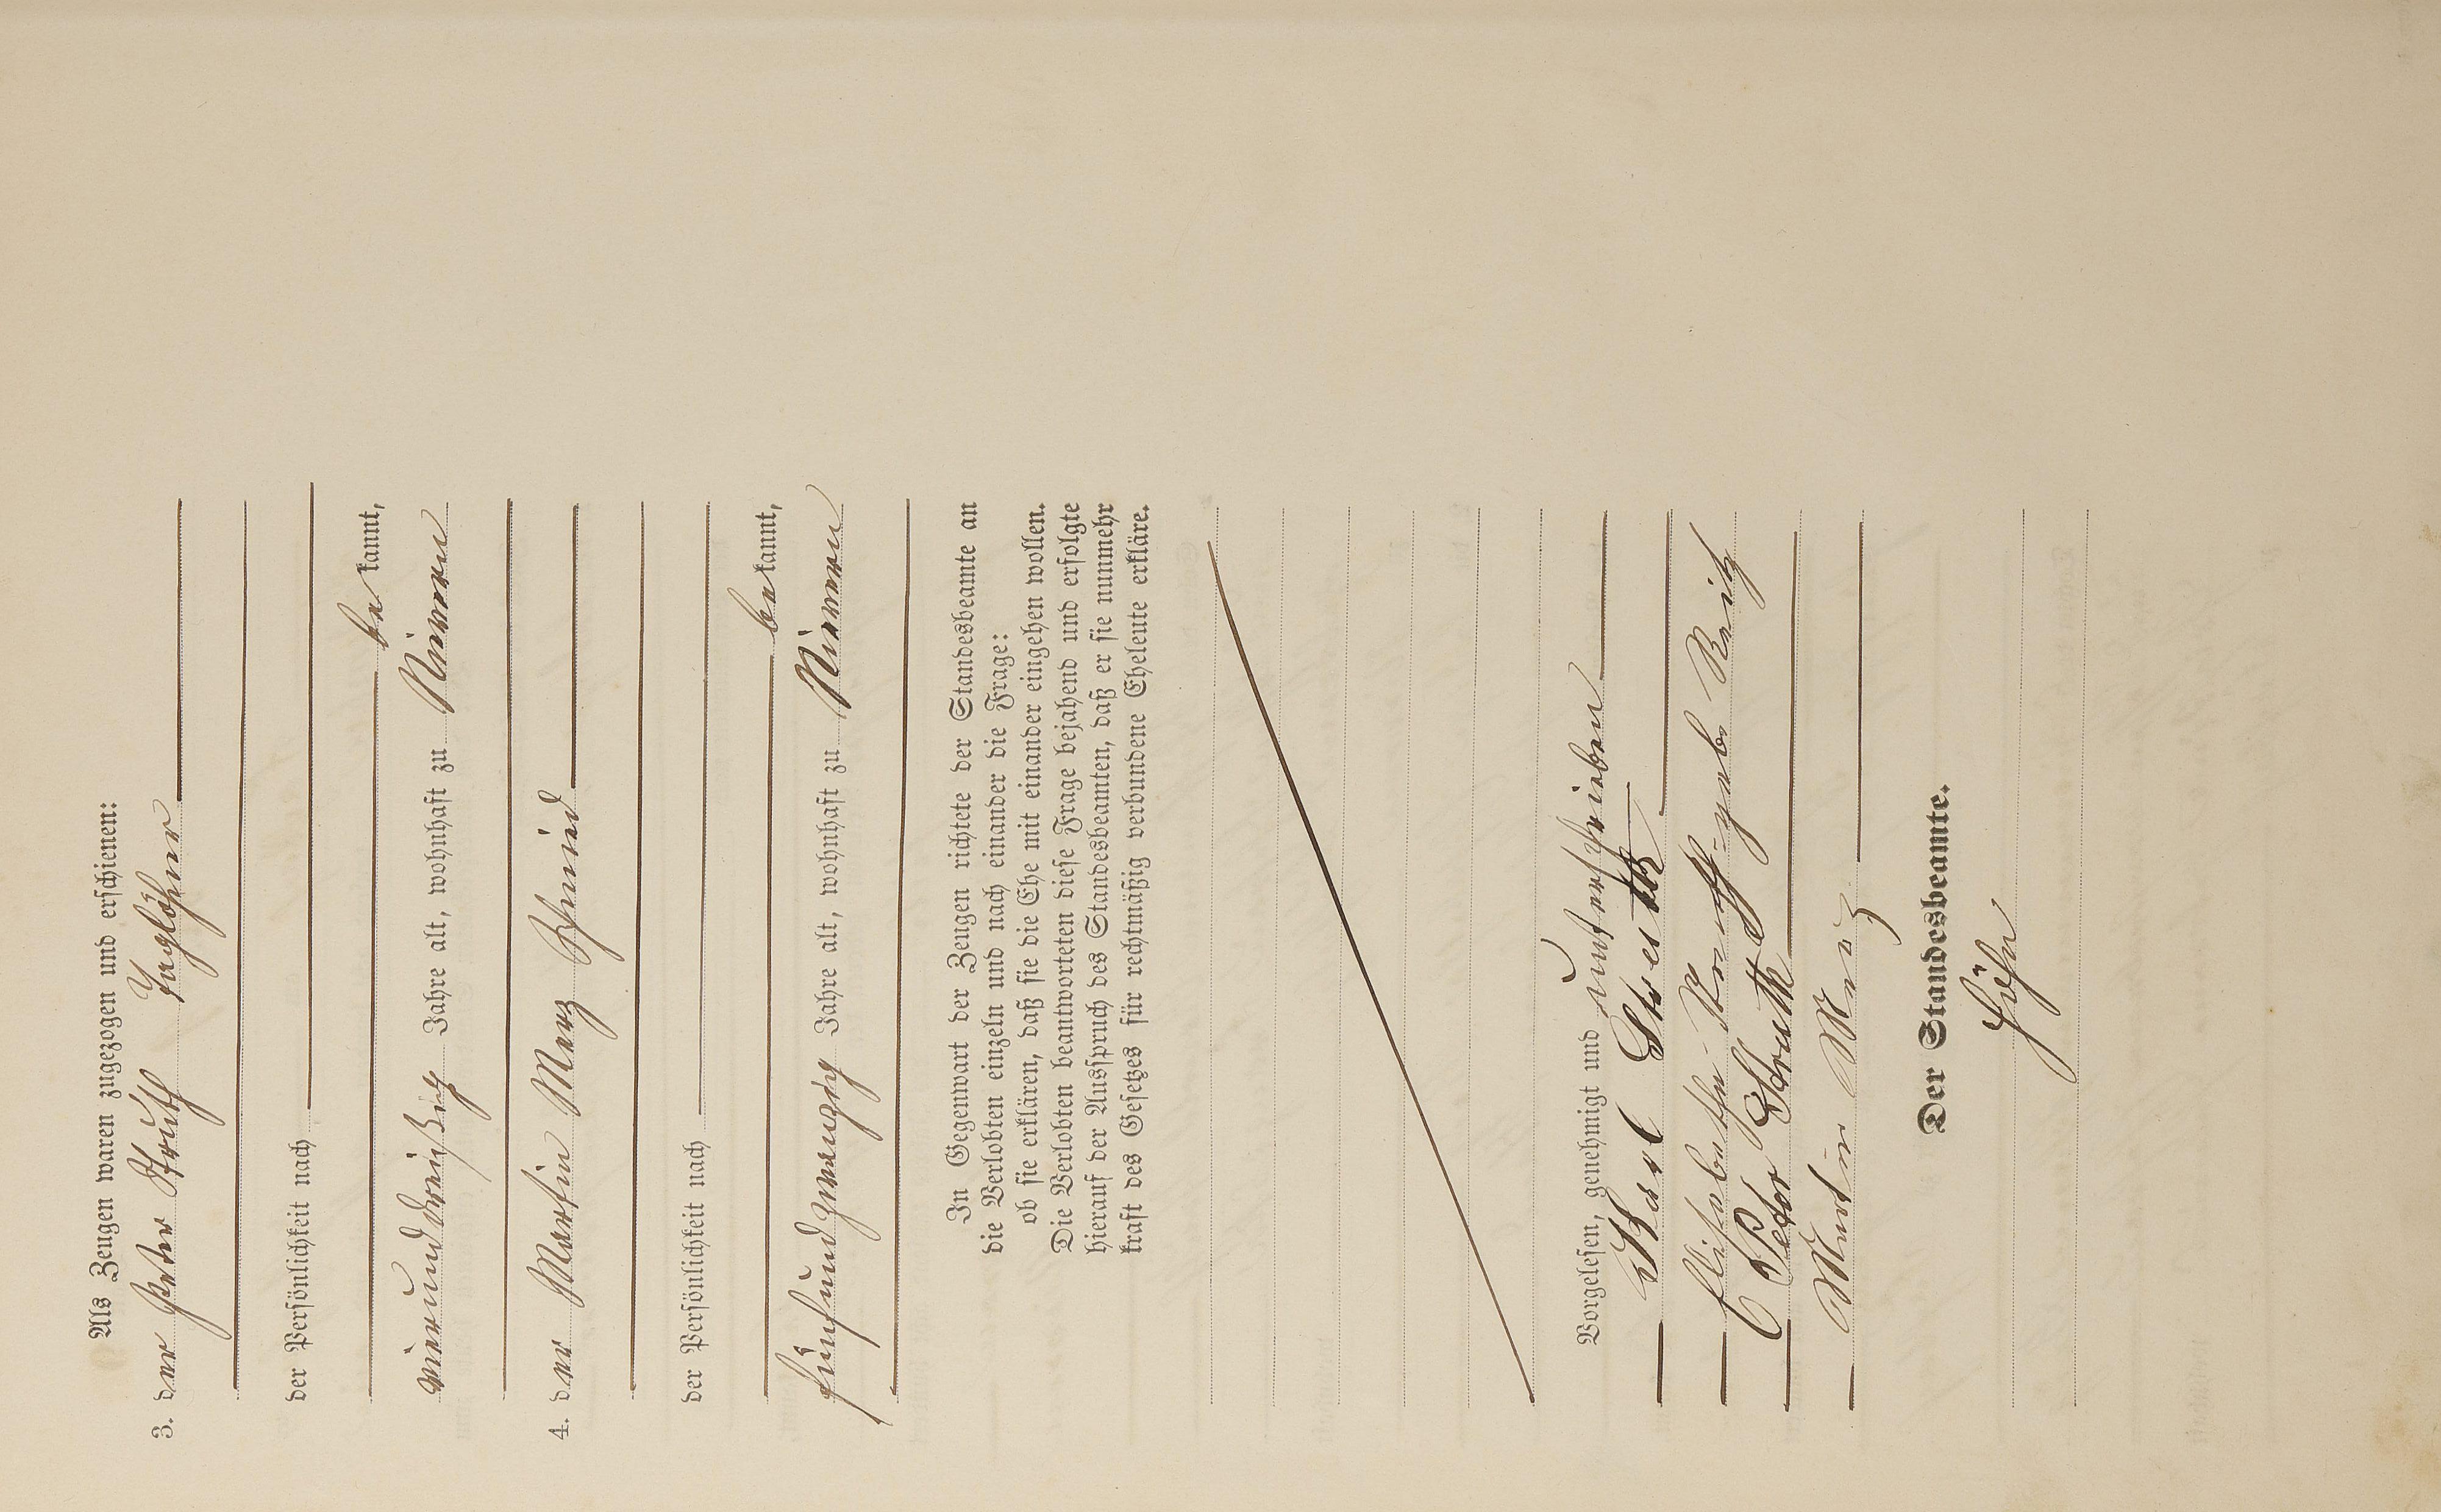 Als Zeugen waren zugezogen und erschienen:
3. der Peter Struth Taglöhner
der Persönlichkeit nach
bekannt,
vierunddreißig Jahre alt, wohnhaft zu Nievern
4. der Martin Merz Schmied
der Persönlichkeit nach
bekannt,
fünfundzwanzig Jahre alt, wohnhaft zu Nievern
In Gegenwart der Zeugen richtete der Standesbeamte an
die Verlobten einzeln und nach einander die Frage:
ob sie erklären, daß sie die Ehe mit einander eingehen wollen.
Die Verlobten beantworteten diese Frage bejahend und erfolgte
hierauf der Ausspruch des Standesbeamten, daß er sie nunmehr
kraft des Gesetzes für rechtmäßig verbundene Eheleute erkläre.
Vorgelesen, genehmigt und unterschrieben
Karl Struth
Elisabetha Struth geb. Reitz
Peter Struth
Martin Merz
Der Standesbeamte.
Höhn